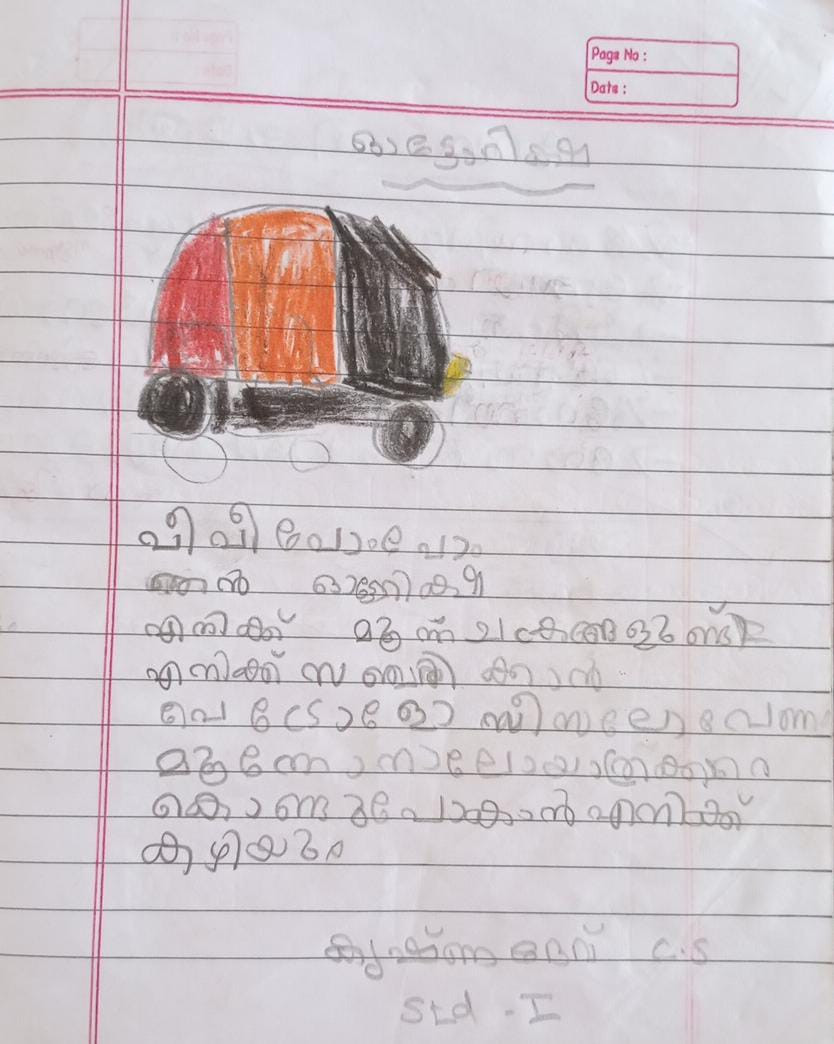 Page No :
Date :
ഓട്ടോറിക്ഷ
പീ പീ പോംപോം
ഞൻ ഓട്ടോറിക്ഷ
എനിക്ക് മൂന്ന് ചക്രങ്ങളുണ്ട്
എനിക്ക് സഞ്ചരിക്കാൻ
പെട്രോളോ ഡീസലോ വേണ
മൂന്നോ നാലോ യാത്രക്കാരെ
കൊണ്ടുപോകാൻ എനിക്ക്
കഴിയും
കൃഷ്ണദേവ് C.S
Std - I